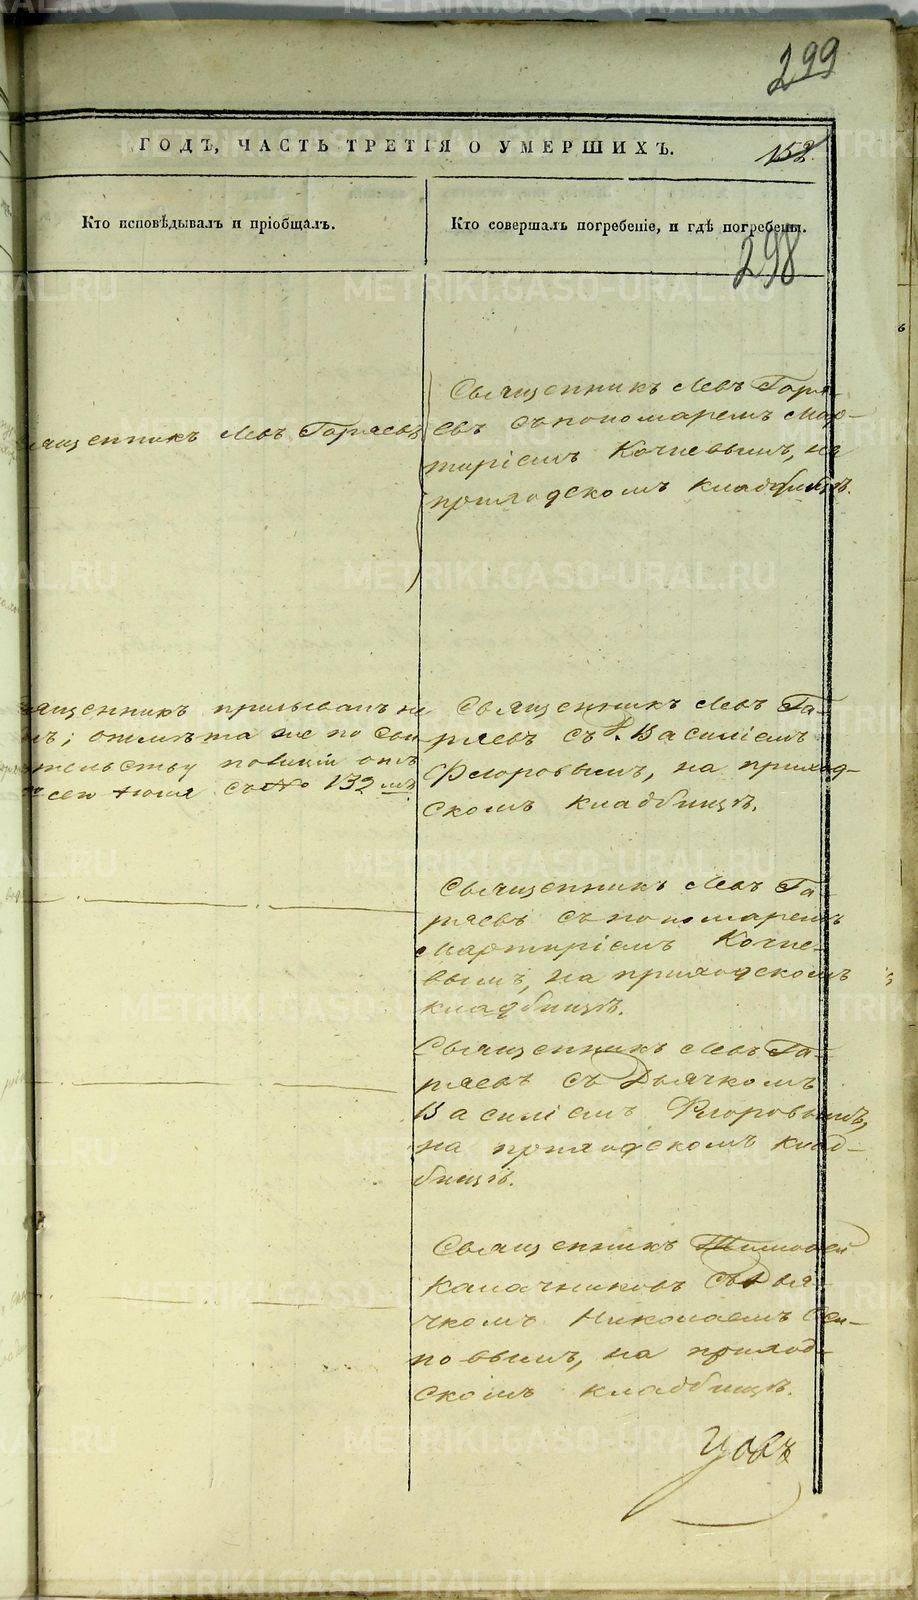 299
ГОДЪ, ЧАСТЬ ТРЕТІЯ О УМЕРШИХЪ.
152
Кто исповѣдывалъ и пріобщалъ.
Кто совершалъ погребеніе, и гдѣ погребены.
298
ященникъ Левъ Гаряевъ
Священникъ Левъ Гаря-
евъ съ пономаремъ Мар-
тиріемъ Кочневымъ, на
приходскомъ кладбищѣ.
ященникъ призыванъ не
ъ; отпѣта же по сви
тельству полиціи отъ
сего Іюня съ № 132мъ
Священникъ Левъ Га-
ряевъ съ Д. Василіемъ
Флоровымъ, на приход-
скомъ кладбищѣ.
Священникъ Левъ Га-
ряевъ съ пономаремъ
Мартиріемъ Кочне-
вымъ, на приходскомъ
кладбищѣ.
Священникъ Левъ Га-
ряевъ съ Дьячкомъ
Василіемъ Флоровымъ,
на приходскомъ клад-
бищѣ.
Священникъ Тимофей
Калачниковъ съ Дья-
чкомъ Николаемъ Оси-
повымъ, на приход-
скомъ кладбищѣ.
METRIKI.GASO-URAL.RU